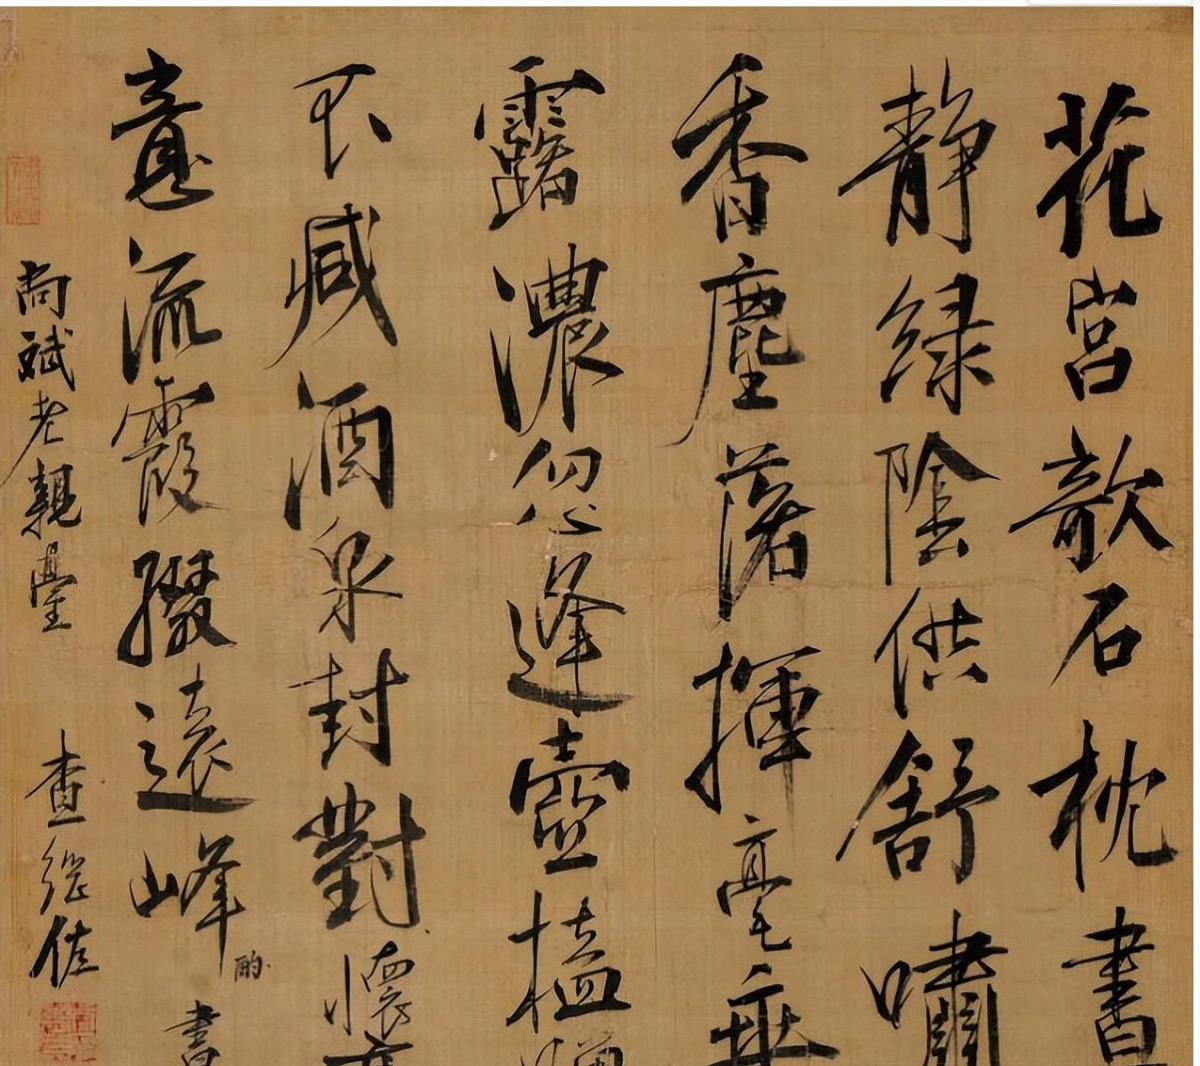 花宮欹石枕書
靜綠陰供舒嘯
香塵落揮毫乘
露濃忽逢壺榼贈
不減酒泉封對懷
意流霞綴遠峰酌
書
尚斌老親臺
查繼佐